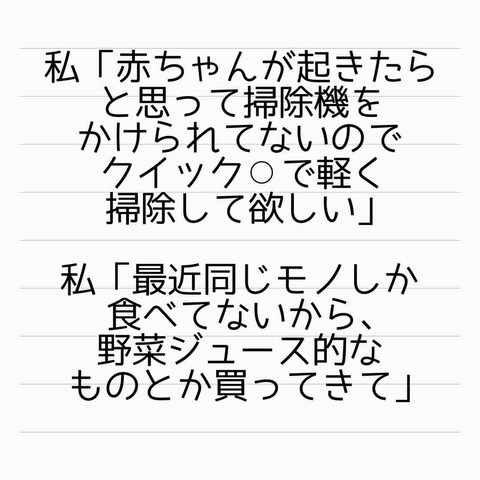 私「赤ちゃんが起きたら
と思って掃除機を
かけられてないので
クイック○で軽く
掃除して欲しい」
私「最近同じモノしか
食べてないから、
野菜ジュース的な
ものとか買ってきて」